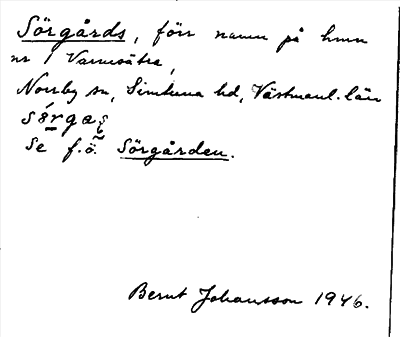 Sörgårds, förr namn på hmn
nr 1 Varmsätra,
Norrby sn, Simtuna hd, Västmanl. län
Se f.ö. Sörgården.
Bernt Johansson 1946.